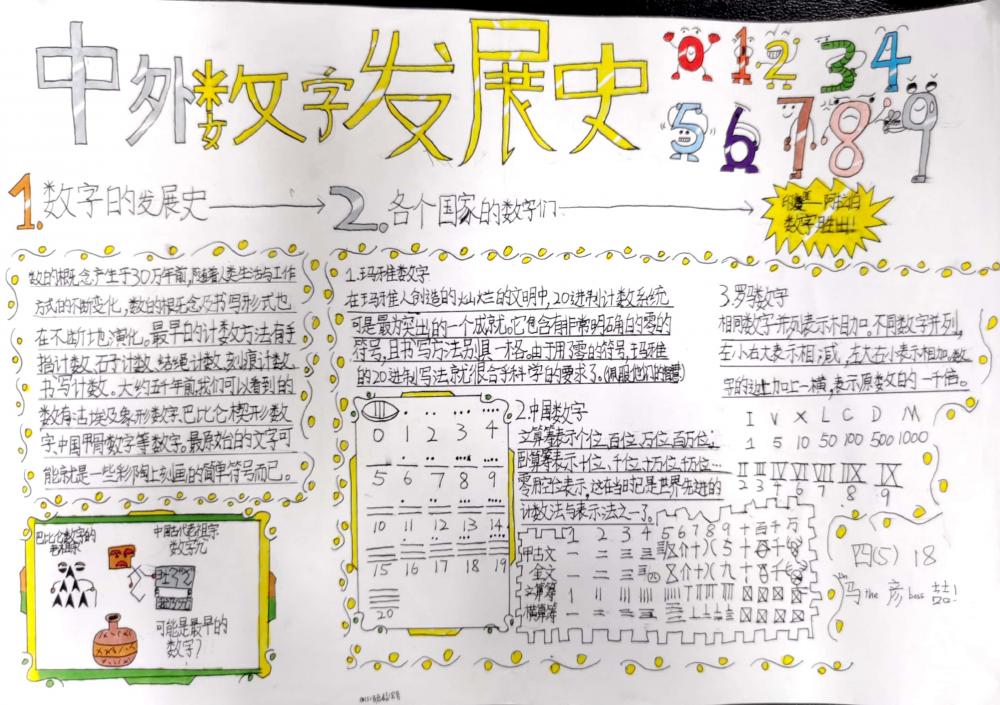 中外数字发展史
0 1 2 3 4
5 6 7 8 9
1.数字的发展史
2.各个国家的数字们
印度—阿拉伯
数字胜出!!
数的概念产生于30万年前,随着人类生活与工作
方式的不断变化,数的概念及书写形式也
在不断地演化。最早的计数方法有手
指计数、石子计数、结绳计数、刻痕计数、
书写计数。大约五千年前我们可以看到的
数有:古埃及象形数字、巴比伦楔形数
字、中国甲骨数字等数字。最原始的文字可
能就是一些彩陶上刻画的简单符号而已。
巴比伦数字的
中国古代老祖宗
数字
可能是最早的
数字?
1.玛雅数字
在玛雅人创造的灿烂的文明中,20进制计数系统
可是最为突出的一个成就。它包含有非常明确的零的
符号,且书写方法别具一格。由于用了零的符号,玛雅
的20进制写法就很合乎科学的要求了。(佩服他们的智慧)
0 1 2 3 4
5 6 7 8 9
10 11 12 13 14
15 16 17 18 19
20
2.中国数字
立算筹表示个位、百位、万位、百万位;
卧算筹表示十位、千位、十万位、千万位…
零用空位表示,这在当时已是世界先进的
计数法与表示法之一了。
1 2 3 4 5 6 7 8 9 十 百 千 万
甲古文
金文
立算筹
横算筹
3.罗马数字
相同数字并列表示相加,不同数字并列,
左小右大表示相减,左大右小表示相加。数
字的边上加上一横,表示原数的一千倍。
I V X L C D M
1 5 10 50 100 500 1000
II III IV VI VII VIII IX
2 3 4 6 7 8 9
四(5) 18
冯 the 彦 boss 喆!